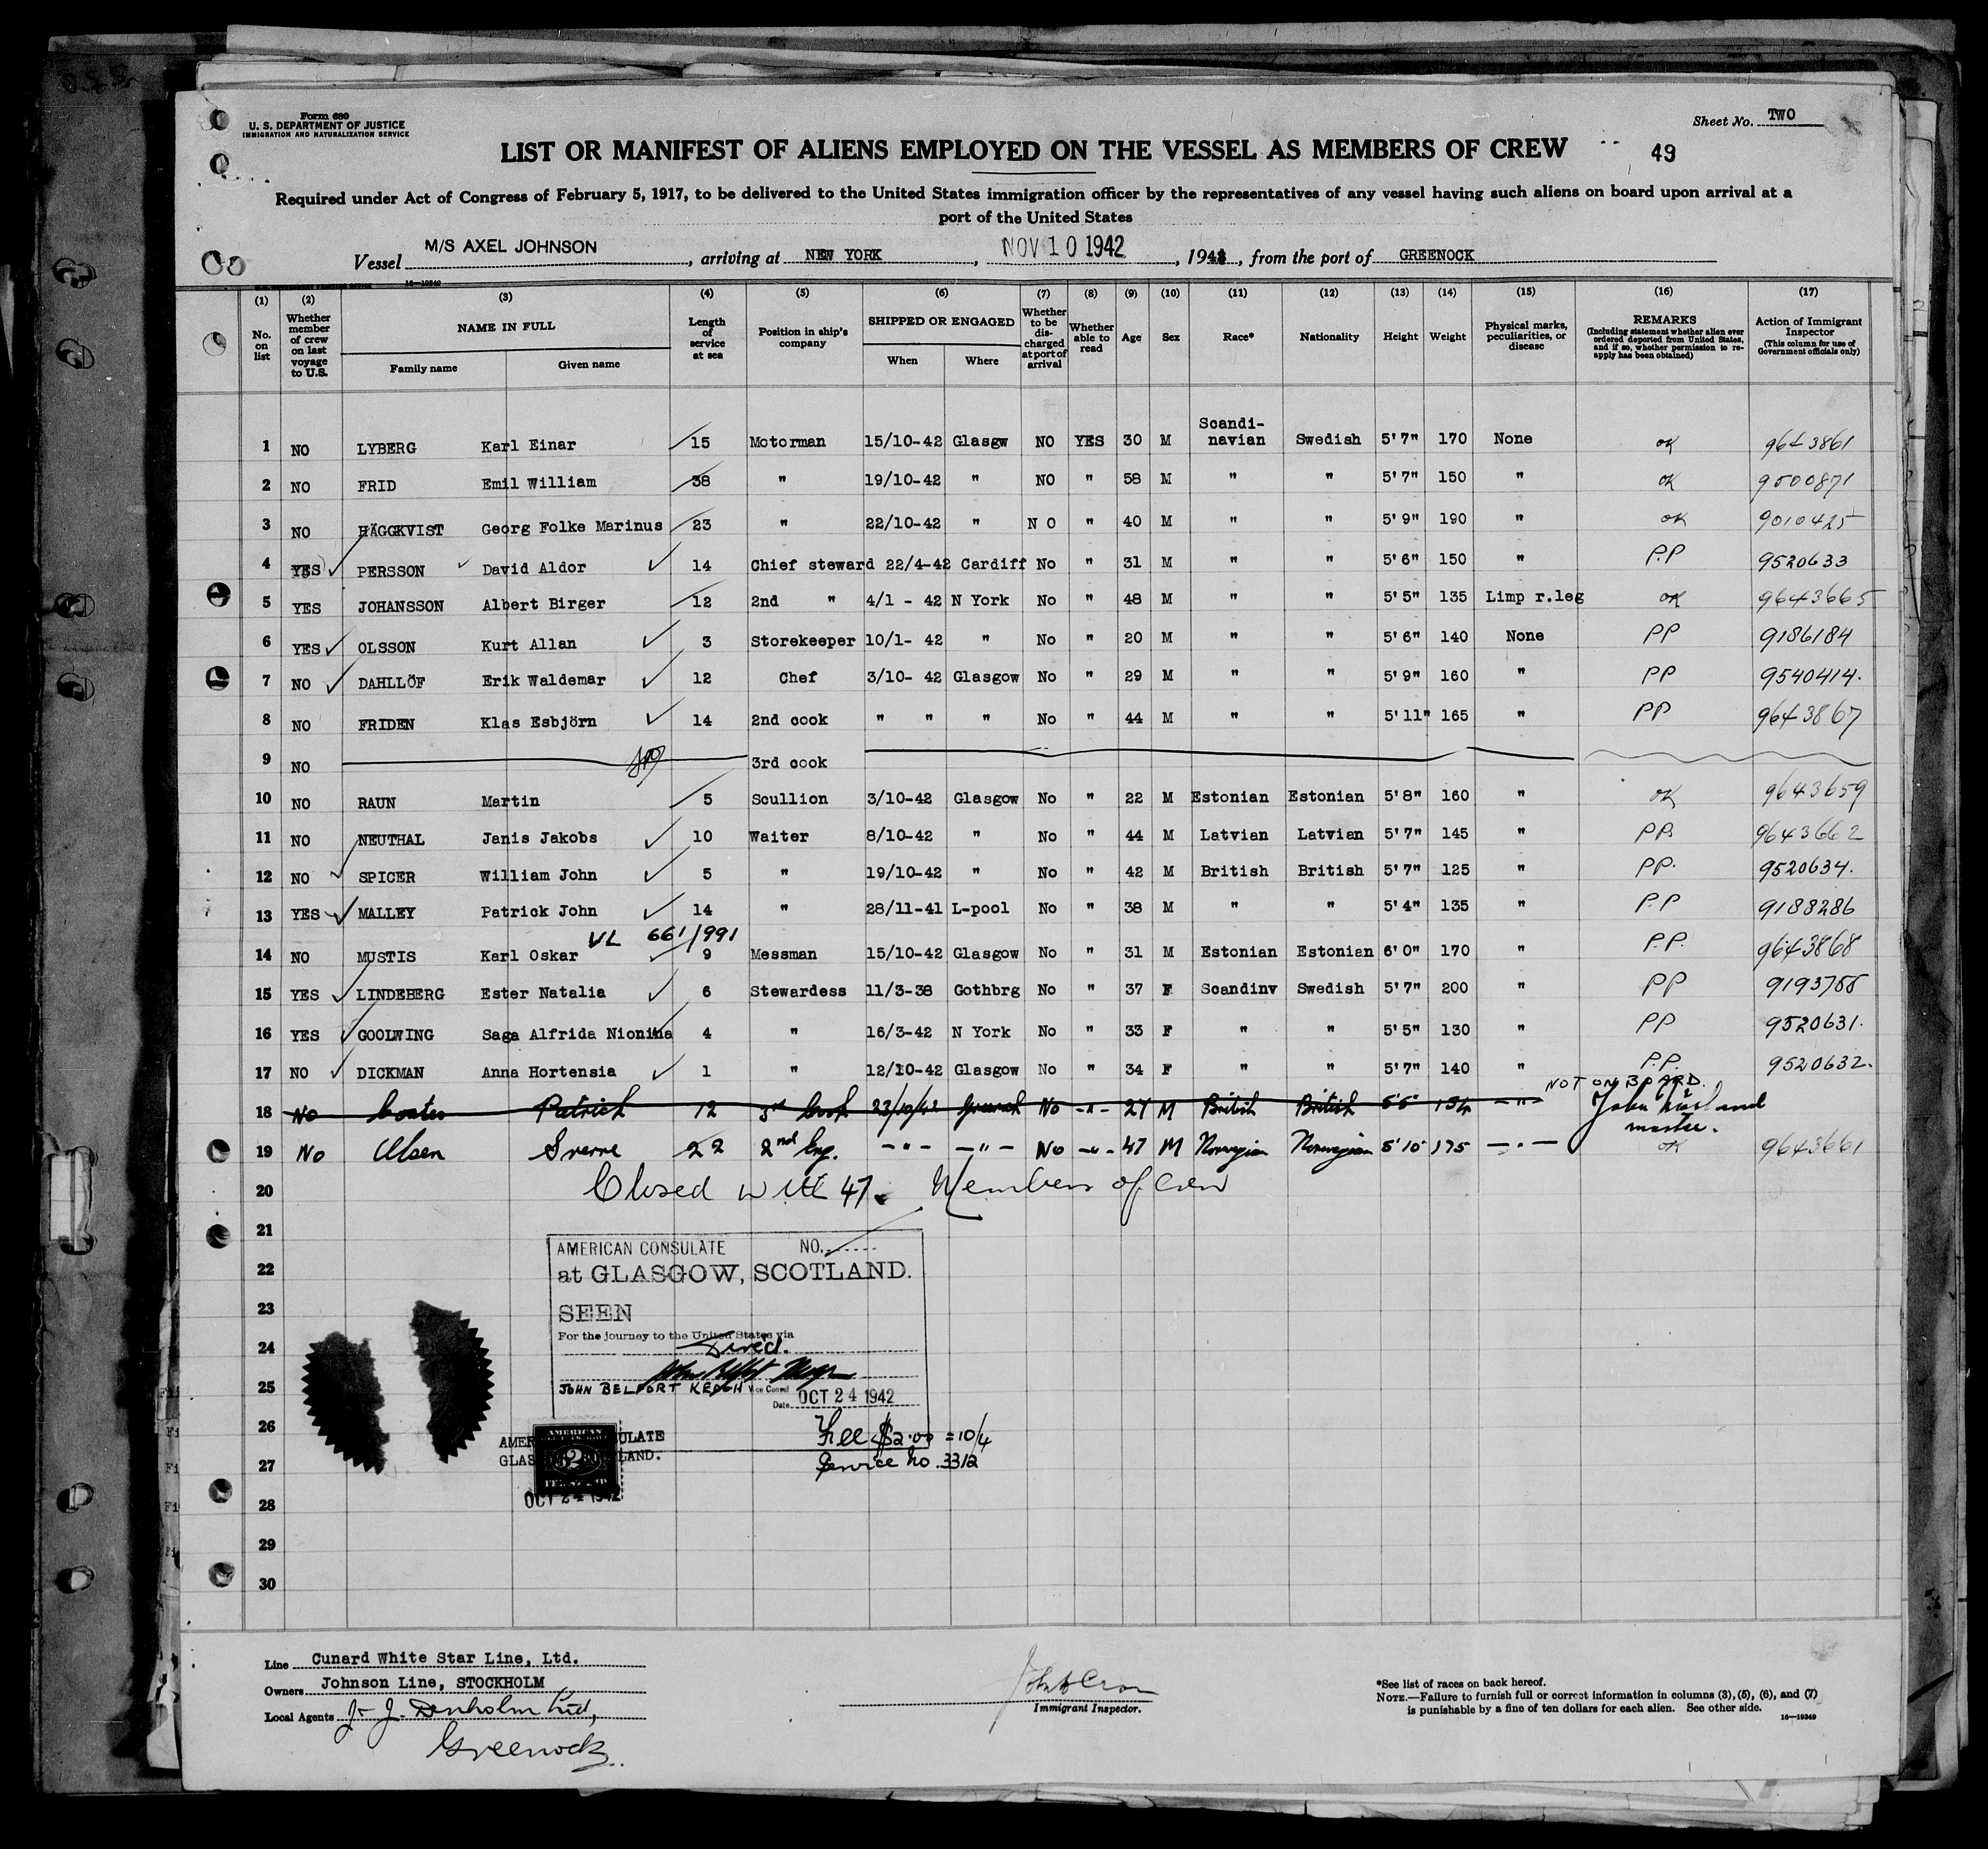 Form 680
U. S. DEPARTMENT OF JUSTICE
IMMIGRATION AND NATURALIZATION SERVICE
Sheet No. TWO
LIST OR MANIFEST OF ALIENS EMPLOYED ON THE VESSEL AS MEMBERS OF CREW
49
Required under Act of Congress of February 5, 1917, to be delivered to the United States immigration officer by the representatives of any vessel having such aliens on board upon arrival at a
port of the United States
Vessel M/S AXEL JOHNSON, arriving at NEW YORK, NOV 10 1942, 194, from the port of GREENOCK
16—19349
(1) (2) (3) (4) (5) (6) (7) (8) (9) (10) (11) (12) (13) (14) (15) (16) (17)
No. on list
Whether member of crew on last voyage to U.S.
NAME IN FULL
Family name Given name
Length of service at sea
Position in ship's company
SHIPPED OR ENGAGED
When Where
Whether to be discharged at port of arrival
Whether able to read
Age
Sex
Race*
Nationality
Height
Weight
Physical marks, peculiarities, or disease
REMARKS
(Including statement whether alien ever ordered deported from United States, and if so, whether permission to reapply has been obtained)
Action of Immigrant Inspector
(This column for use of Government officials only)
1 NO LYBERG Karl Einar 15 Motorman 15/10-42 Glasgw NO YES 30 M Scandi-navian Swedish 5'7" 170 None OK 9643861
2 NO FRID Emil William 38 " 19/10-42 " NO " 58 M " " 5'7" 150 " OK 9500871
3 NO HÄGGKVIST Georg Folke Marinus 23 " 22/10-42 " N O " 40 M " " 5'9" 190 " OK 9010425
4 YES PERSSON David Aldor 14 Chief steward 22/4-42 Cardiff No " 31 M " " 5'6" 150 " P.P 9520633
5 YES JOHANSSON Albert Birger 12 2nd " 4/1 - 42 N York No " 48 M " " 5'5" 135 Limp r.leg OK 9643665
6 YES OLSSON Kurt Allan 3 Storekeeper 10/1- 42 " No " 20 M " " 5'6" 140 None PP 9186184
7 NO DAHLLÖF Erik Waldemar 12 Chef 3/10- 42 Glasgow No " 29 M " " 5'9" 160 " PP 9540414.
8 NO FRIDEN Klas Esbjörn 14 2nd cook " " " No " 44 M " " 5'11" 165 " PP 9643867
9 NO 3rd cook
10 NO RAUN Martin 5 Scullion 3/10-42 Glasgow No " 22 M Estonian Estonian 5'8" 160 " OK 9643659
11 NO NEUTHAL Janis Jakobs 10 Waiter 8/10-42 " No " 44 M Latvian Latvian 5'7" 145 " PP. 9643662
12 NO SPICER William John 5 " 19/10-42 " No " 42 M British British 5'7" 125 " PP. 9520634.
13 YES MALLEY Patrick John 14 " 28/11-41 L-pool No " 38 M " " 5'4" 135 " P.P 9188286
VL 661/991
14 NO MUSTIS Karl Oskar 9 Messman 15/10-42 Glasgow No " 31 M Estonian Estonian 6'0" 170 " P.P. 9643868
15 YES LINDEBERG Ester Natalia 6 Stewardess 11/3-38 Gothbrg No " 37 F Scandinv Swedish 5'7" 200 " PP 9193788
16 YES GOOLWING Saga Alfrida Nionina 4 " 16/3-42 N York No " 33 F " " 5'5" 130 " PP 9520631.
17 NO DICKMAN Anna Hortensia 1 " 12/10-42 Glasgow No " 34 F " " 5'7" 140 " P.P. 9520632.
NOT ON BOARD.
18 No Coates Patrick 12 3rd Cook 23/10/42 Greenock No -"- 27 M British British 5'5" 154 -"- John
master.
19 No Olsen Sverre 22 2nd Eng. -"- -"- No -"- 47 M Norwegian Norwegian 5'10" 175 -"- OK 9643661
20 Closed with 47. Members of crew
21
22
23
24
25
26
27
28
29
30
AMERICAN CONSULATE NO.
at GLASGOW, SCOTLAND.
SEEN
For the journey to the United States via
Direct.
JOHN BELFORT KEOGH Vice Consul
Date OCT 24 1942
Fee $2.00 = 10/4
Service No. 3312
AMERICAN
2
OCT 24 1942
Line Cunard White Star Line, Ltd.
Owners Johnson Line, STOCKHOLM
Local Agents J. J. Denholm Ltd,
Greenock.
Immigrant Inspector.
*See list of races on back hereof.
NOTE.—Failure to furnish full or correct information in columns (3), (5), (6), and (7)
is punishable by a fine of ten dollars for each alien. See other side.
16—19349